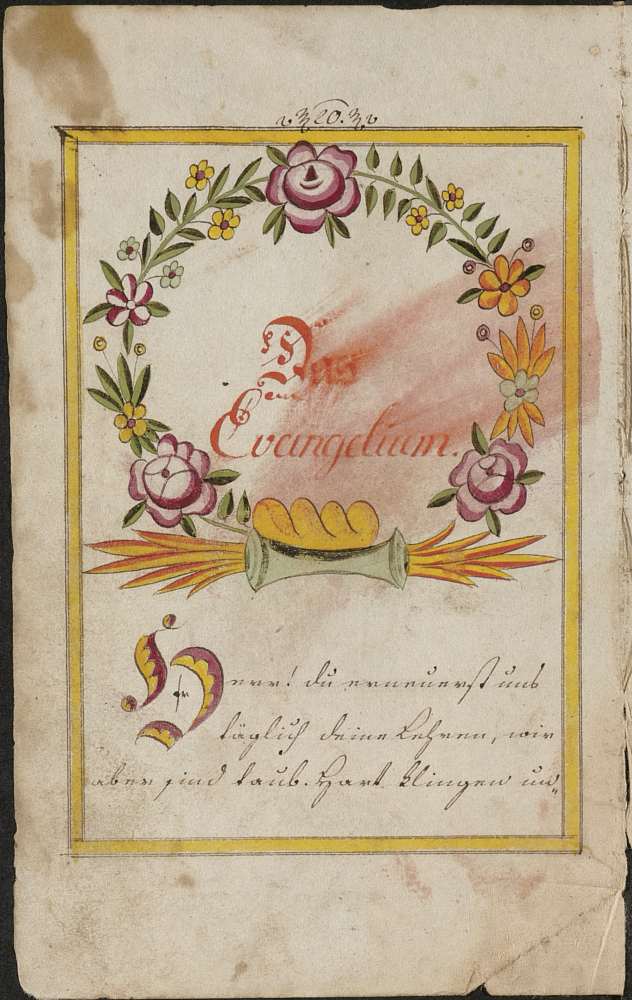 20.
Das
Evangelium.
Herr! du erneuerst uns
täglich deine Lehren, wir
aber sind taub. Hart klingen un„